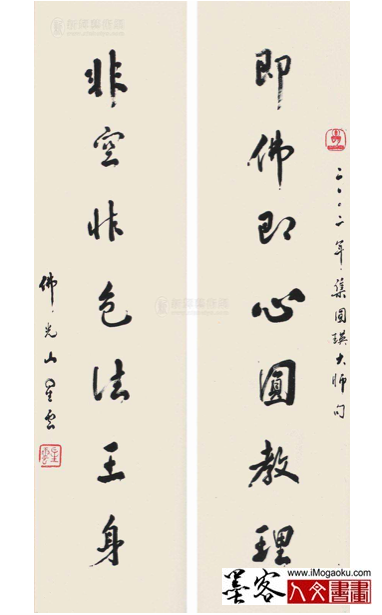 即佛即心圓教理
二〇〇二年集圓瑛大師句
非空非色法王身
佛光山星雲
www.iMogaoku.com
墨客
人文書畫